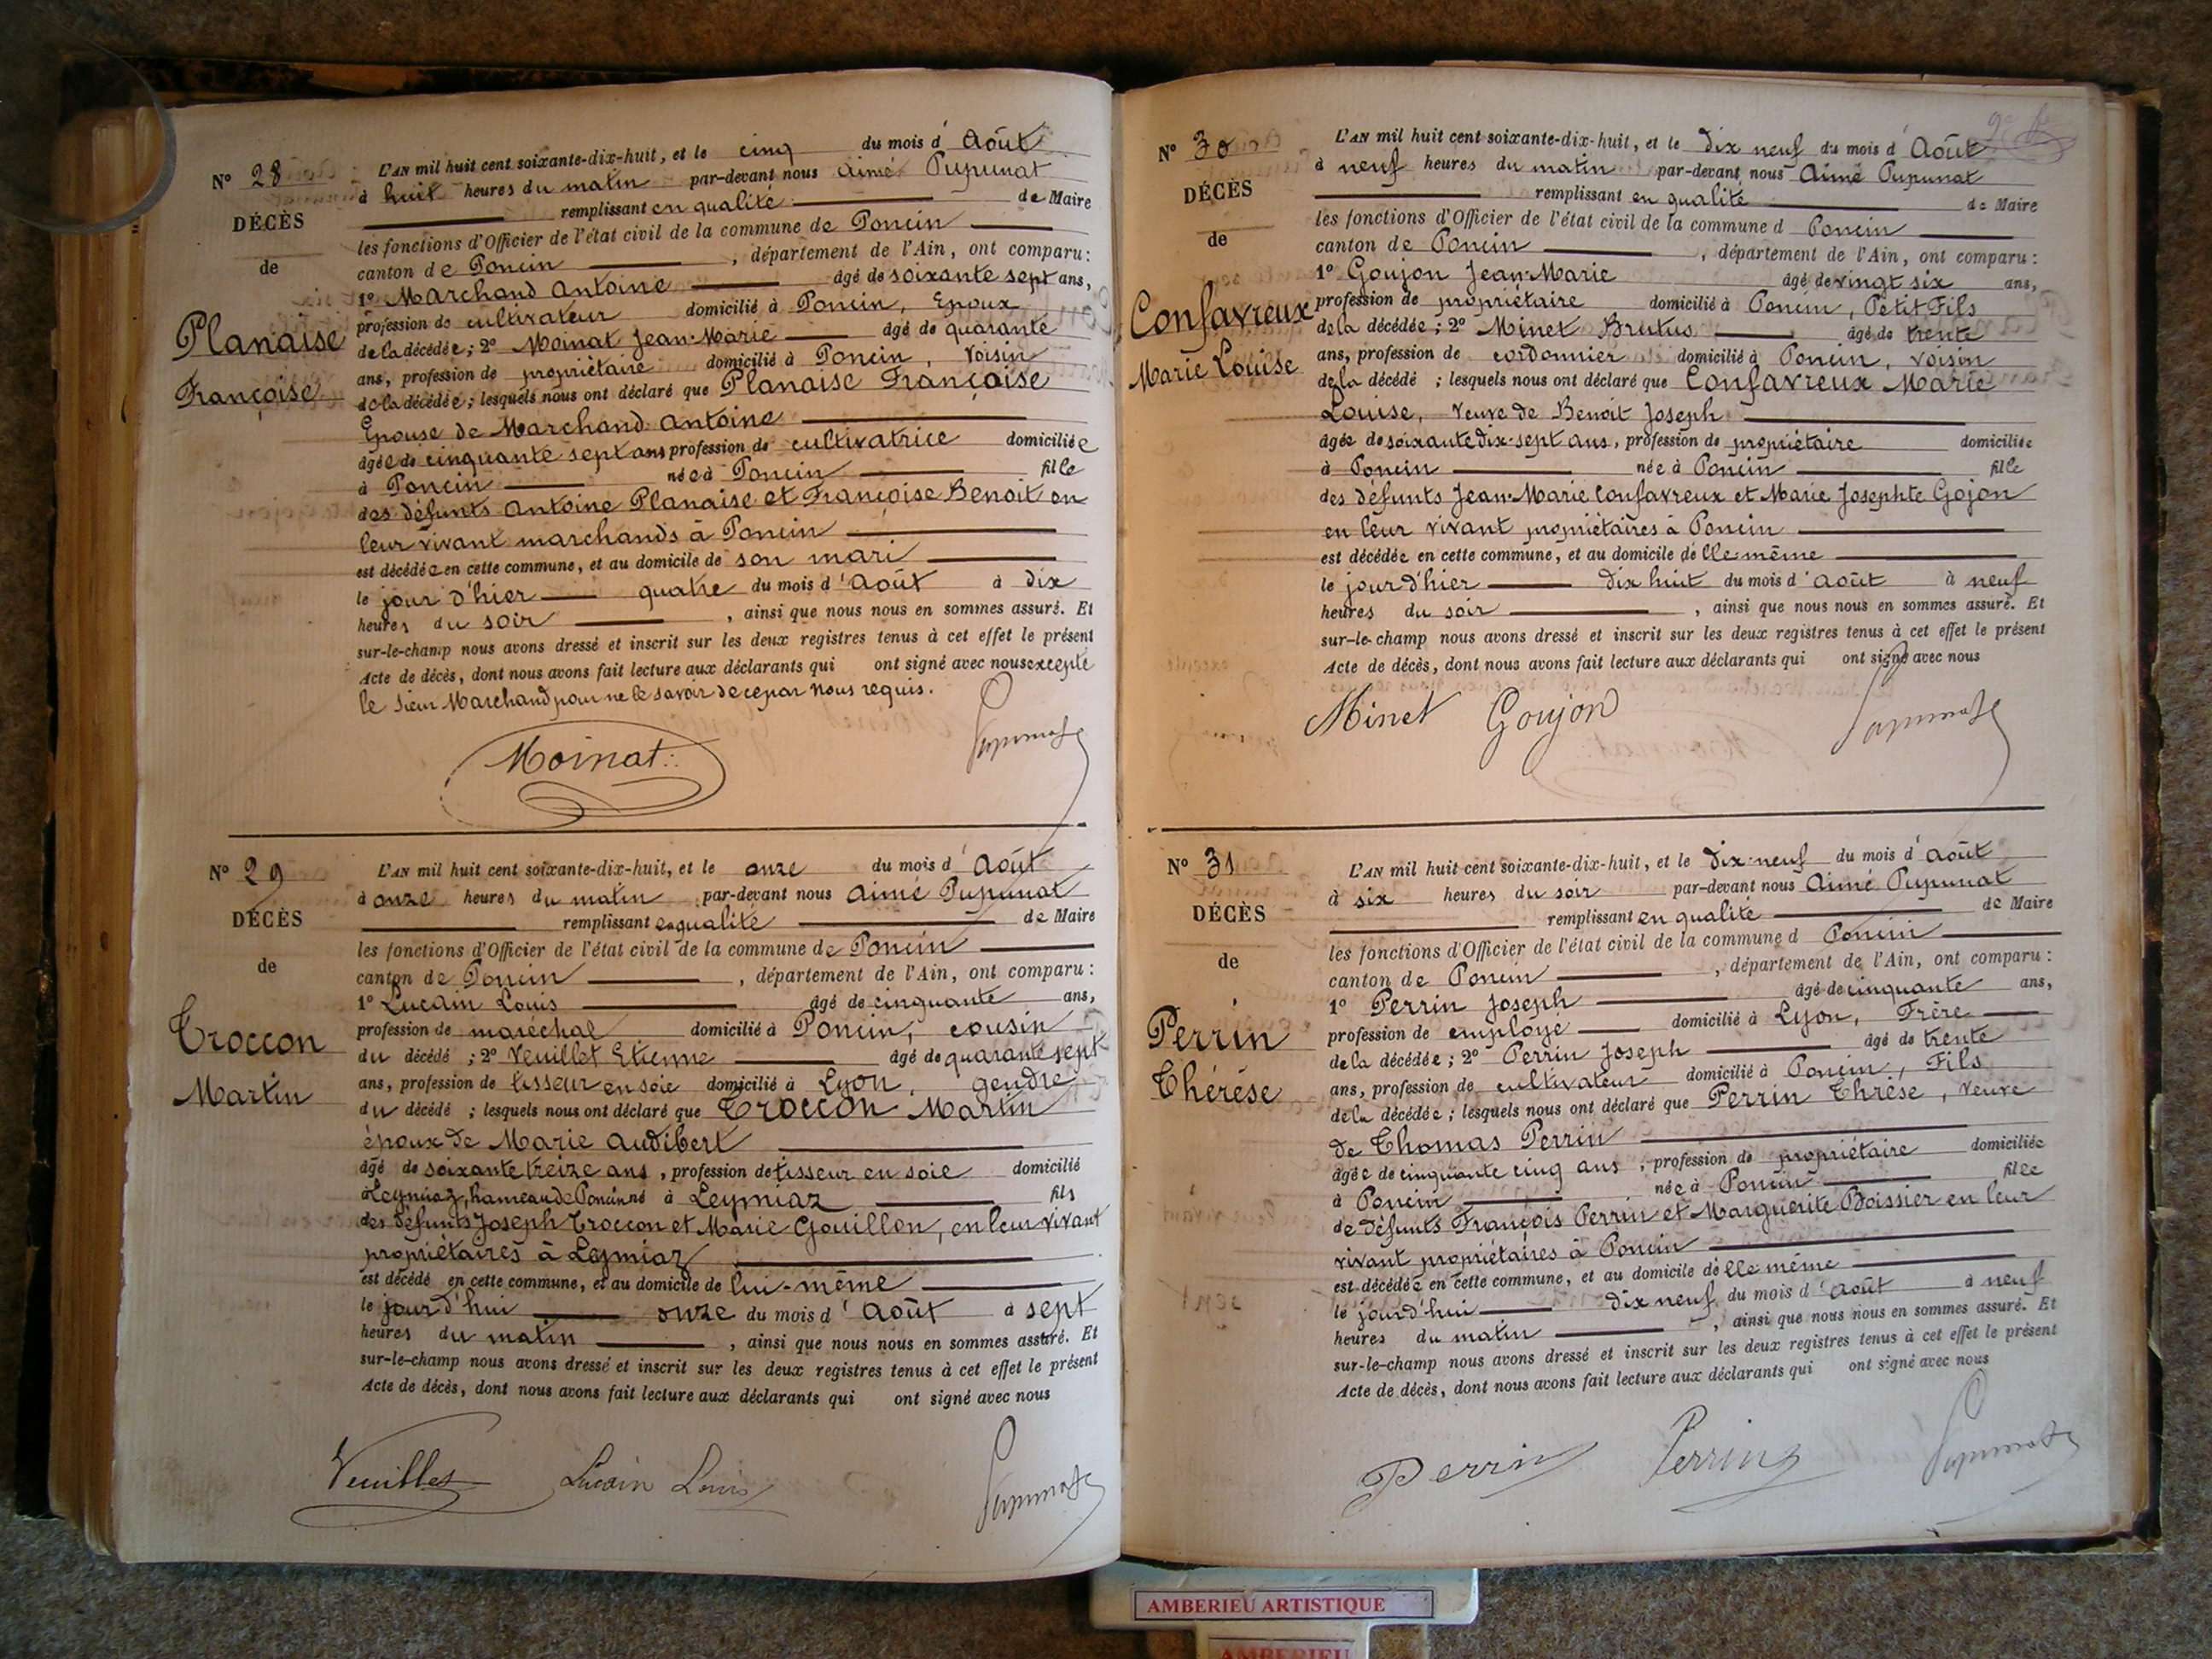 N° 28
DÉCÈS
de
Planaise
Françoise
L'AN mil huit cent soixante-dix-huit, et le cinq du mois d'Août
à huit heures du matin par-devant nous Aimé Pupunat
remplissant en qualité de Maire
les fonctions d'Officier de l'état civil de la commune de Poncin
canton de Poncin, département de l'Ain, ont comparu :
1° Marchand Antoine âgé de soixante sept ans,
profession de cultivateur domicilié à Poncin, Epoux
de la décédée ; 2° Moinat Jean-Marie âgé de quarante
ans, profession de propriétaire domicilié à Poncin, voisin
de la décédée ; lesquels nous ont déclaré que Planaise Françoise
Epouse de Marchand Antoine
âgée de cinquante sept ans profession de cultivatrice domiciliée
à Poncin née à Poncin fille
des défunts Antoine Planaise et Françoise Benoit en
leur vivant marchands à Poncin
est décédée en cette commune, et au domicile de son mari
le jour d'hier quatre du mois d'Août à dix
heures du soir, ainsi que nous nous en sommes assuré. Et
sur-le-champ nous avons dressé et inscrit sur les deux registres tenus à cet effet le présent
Acte de décès, dont nous avons fait lecture aux déclarants qui ont signé avec nous excepté
le sieur Marchand pour ne le savoir de ce par nous requis.
Moinat Pupunat
N° 29
DÉCÈS
de
Troccon
Martin
L'AN mil huit cent soixante-dix-huit, et le onze du mois d'Août
à onze heures du matin par-devant nous Aimé Pupunat
remplissant en qualité de Maire
les fonctions d'Officier de l'état civil de la commune de Poncin
canton de Poncin, département de l'Ain, ont comparu :
1° Lucain Louis âgé de cinquante ans,
profession de maréchal domicilié à Poncin, cousin
du décédé ; 2° Veuillet Etienne âgé de quarante sept
ans, profession de tisseur en soie domicilié à Lyon, gendre
du décédé ; lesquels nous ont déclaré que Troccon Martin
époux de Marie Audibert
âgé de soixante treize ans, profession de tisseur en soie domicilié
à Leymiaz, hameau de Poncin né à Leymiaz fils
des défunts Joseph Troccon et Marie Gouillon, en leur vivant
propriétaires à Leymiaz
est décédé en cette commune, et au domicile de lui-même
le jour d'hui onze du mois d'Août à sept
heures du matin, ainsi que nous nous en sommes assuré. Et
sur-le-champ nous avons dressé et inscrit sur les deux registres tenus à cet effet le présent
Acte de décès, dont nous avons fait lecture aux déclarants qui ont signé avec nous
Veuillet Lucain Louis Pupunat
N° 30
DÉCÈS
de
Confavreux
Marie Louise
L'AN mil huit cent soixante-dix-huit, et le dix neuf du mois d'Août
à neuf heures du matin par-devant nous Aimé Pupunat
remplissant en qualité de Maire
les fonctions d'Officier de l'état civil de la commune d Poncin
canton de Poncin, département de l'Ain, ont comparu :
1° Goujon Jean-Marie âgé de vingt six ans,
profession de propriétaire domicilié à Poncin, Petit Fils
de la décédée ; 2° Minet Brutus âgé de trente
ans, profession de cordonnier domicilié à Poncin, voisin
de la décédé ; lesquels nous ont déclaré que Confavreux Marie
Louise, Veuve de Benoit Joseph
âgée de soixante dix-sept ans, profession de propriétaire domiciliée
à Poncin née à Poncin fille
des défunts Jean-Marie Confavreux et Marie Josephte Gojon
en leur vivant propriétaires à Poncin
est décédée en cette commune, et au domicile d'elle même
le jour d'hier dix huit du mois d'Août à neuf
heures du soir, ainsi que nous nous en sommes assuré. Et
sur-le-champ nous avons dressé et inscrit sur les deux registres tenus à cet effet le présent
Acte de décès, dont nous avons fait lecture aux déclarants qui ont signé avec nous
Minet Goujon Pupunat
N° 31
DÉCÈS
de
Perrin
Thérèse
L'AN mil huit cent soixante-dix-huit, et le dix-neuf du mois d'Août
à six heures du soir par-devant nous Aimé Pupunat
remplissant en qualité de Maire
les fonctions d'Officier de l'état civil de la commune d Poncin
canton de Poncin, département de l'Ain, ont comparu :
1° Perrin Joseph âgé de cinquante ans,
profession de employé domicilié à Lyon, Frère
de la décédée ; 2° Perrin Joseph âgé de trente
ans, profession de cultivateur domicilié à Poncin, Fils
de la décédée ; lesquels nous ont déclaré que Perrin Thrèse, veuve
de Thomas Perrin
âgée de cinquante cinq ans, profession de propriétaire domiciliée
à Poncin née à Poncin fille
de défunts François Perrin et Marguerite Boissier en leur
vivant propriétaires à Poncin
est décédée en cette commune, et au domicile d'elle même
le jourd'hui dix neuf du mois d'Août à neuf
heures du matin, ainsi que nous nous en sommes assuré. Et
sur-le-champ nous avons dressé et inscrit sur les deux registres tenus à cet effet le présent
Acte de décès, dont nous avons fait lecture aux déclarants qui ont signé avec nous
Perrin Perrin Pupunat
AMBERIEU ARTISTIQUE
AMBERIEU